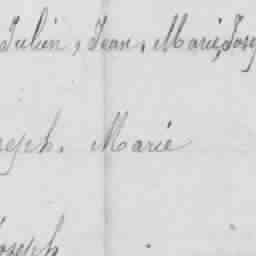 Julien, Jean, Marie, Josep
seph. Marie
Joseph